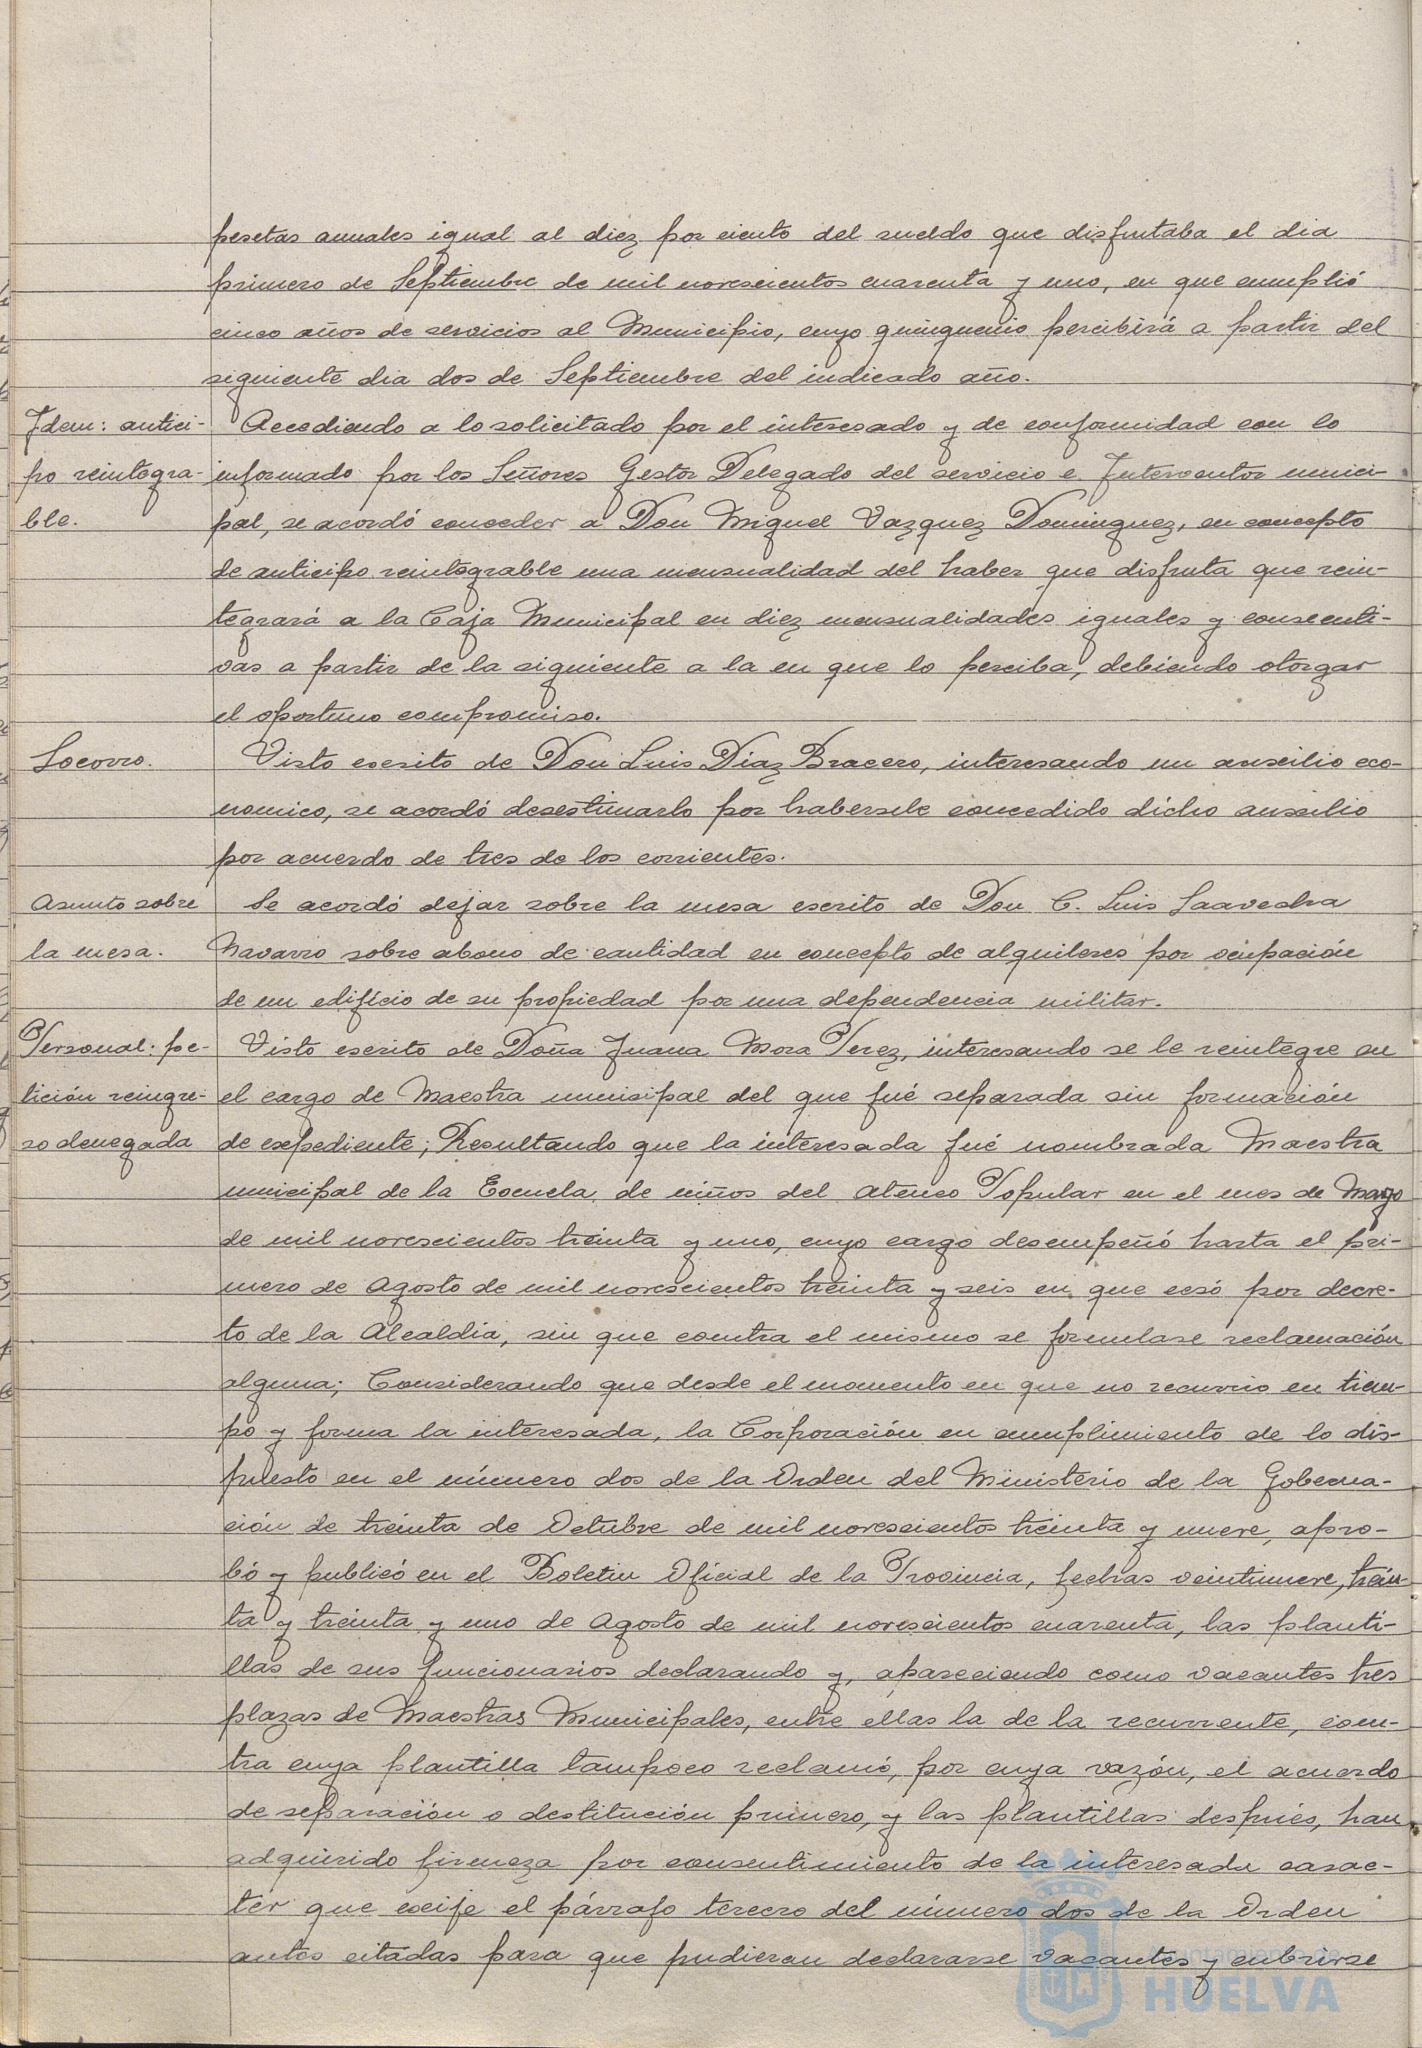 pesetas anuales igual al diez por ciento del sueldo que disfrutaba el dia
primero de Septiembre de mil novescientos cuarenta y uno, en que cumplió
cinco años de servicios al Municipio, cuyo quinquenio percibirá a partir del
siguiente dia dos de Septiembre del indicado año.
Idem: antici- Accediendo a lo solicitado por el interesado y de conformidad con lo
po reintegra- informado por los Señores Gestor Delegado del servicio e Interventor munici-
ble. pal, se acordó conceder a Don Miguel Vazquez Dominguez, en concepto
de anticipo reintegrable una mensualidad del haber que disfruta que rein-
tegrará a la Caja Municipal en diez mensualidades iguales y consecuti-
vas a partir de la siguiente a la en que lo perciba, debiendo otorgar
el oportuno compromiso.
Socorro. Visto escrito de Don Luis Diaz Bracero, interesando un auxilio eco-
nomico, se acordó desestimarlo por habersele concedido dicho auxilio
por acuerdo de tres de los corrientes.
Asunto sobre Se acordó dejar sobre la mesa escrito de Don C. Luis Saavedra
la mesa. Navarro sobre abono de cantidad en concepto de alquileres por ocupación
de un edificio de su propiedad por una dependencia militar.
Personal: pe- Visto escrito de Doña Juana Mora Perez, interesando se le reintegre en
tición reingre- el cargo de Maestra municipal del que fué separada sin formación
so denegada de expediente; Resultando que la interesada fué nombrada Maestra
municipal de la Escuela de niños del Ateneo Popular en el mes de Mayo
de mil novescientos treinta y uno, cuyo cargo desempeñó hasta el pri-
mero de Agosto de mil novescientos treinta y seis en que cesó por decre-
to de la Alcaldia, sin que contra el mismo se formulase reclamación
alguna; Considerando que desde el momento en que no recurrio en tiem-
po y forma la interesada, la Corporación en cumplimiento de lo dis-
puesto en el número dos de la Orden del Ministerio de la Goberna-
ción de treinta de Octubre de mil novescientos treinta y nueve, apro-
bó y publicó en el Boletin Oficial de la Provincia, fechas veintinueve, trein-
ta y treinta y uno de Agosto de mil novescientos cuarenta, las planti-
llas de sus funcionarios declarando y, apareciendo como vacantes tres
plazas de Maestras Municipales, entre ellas la de la recurrente, con-
tra cuya plantilla tampoco reclamó, por cuya razón, el acuerdo
de separación o destitución primero, y las plantillas después, han
adquirido firmeza por consentimiento de la interesada carac-
ter que exije el párrafo tercero del número dos de la Orden
antes citadas para que pudieran declararse vacantes y cubrirse
Ayuntamiento de
HUELVA